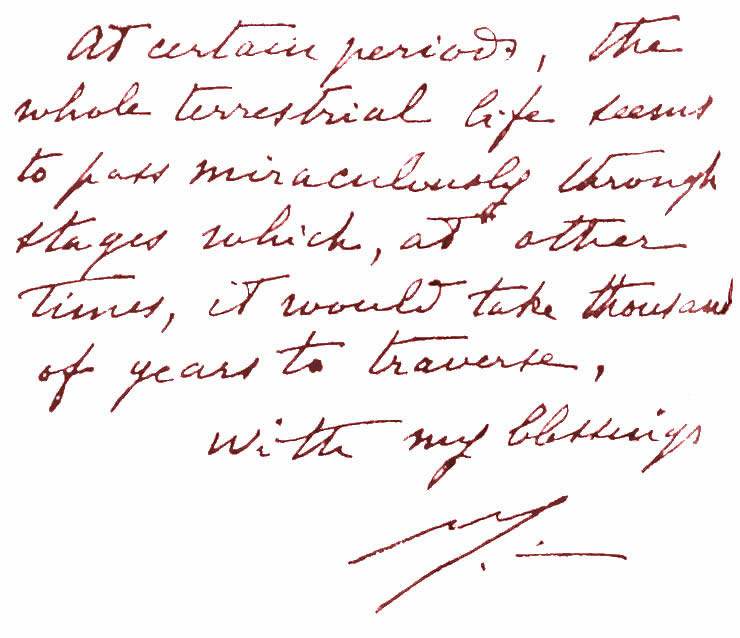 At certain periods, the
whole terrestrial life seems
to pass miraculously through
stages which, at other
times, it would take thousand
of years to traverse.
With my blessings